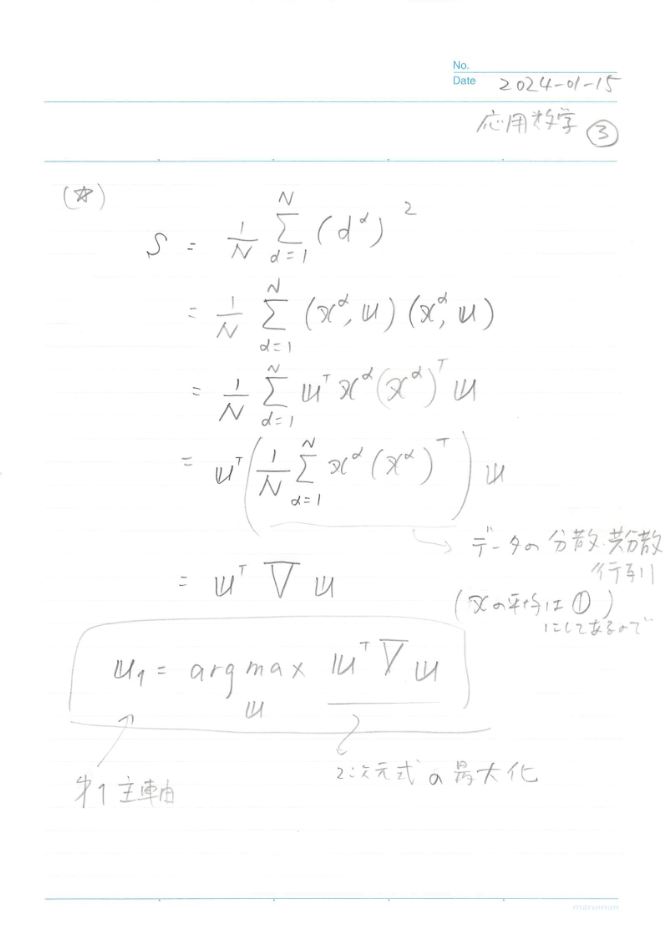 No.
Date 2024-01-15
応用数学 ③
(☆)
S = 1/N Σ_{α=1}^{N} (d^α)^2
= 1/N Σ_{α=1}^{N} (x^α, u)(x^α, u)
= 1/N Σ_{α=1}^{N} u^T x^α (x^α)^T u
= u^T (1/N Σ_{α=1}^{N} x^α (x^α)^T) u
→ データの分散・共分散
行列
= u^T V u
(xの平均は 0)
にしてあるので
u_1 = argmax_u u^T V u
第1主軸
2次元式の最大化